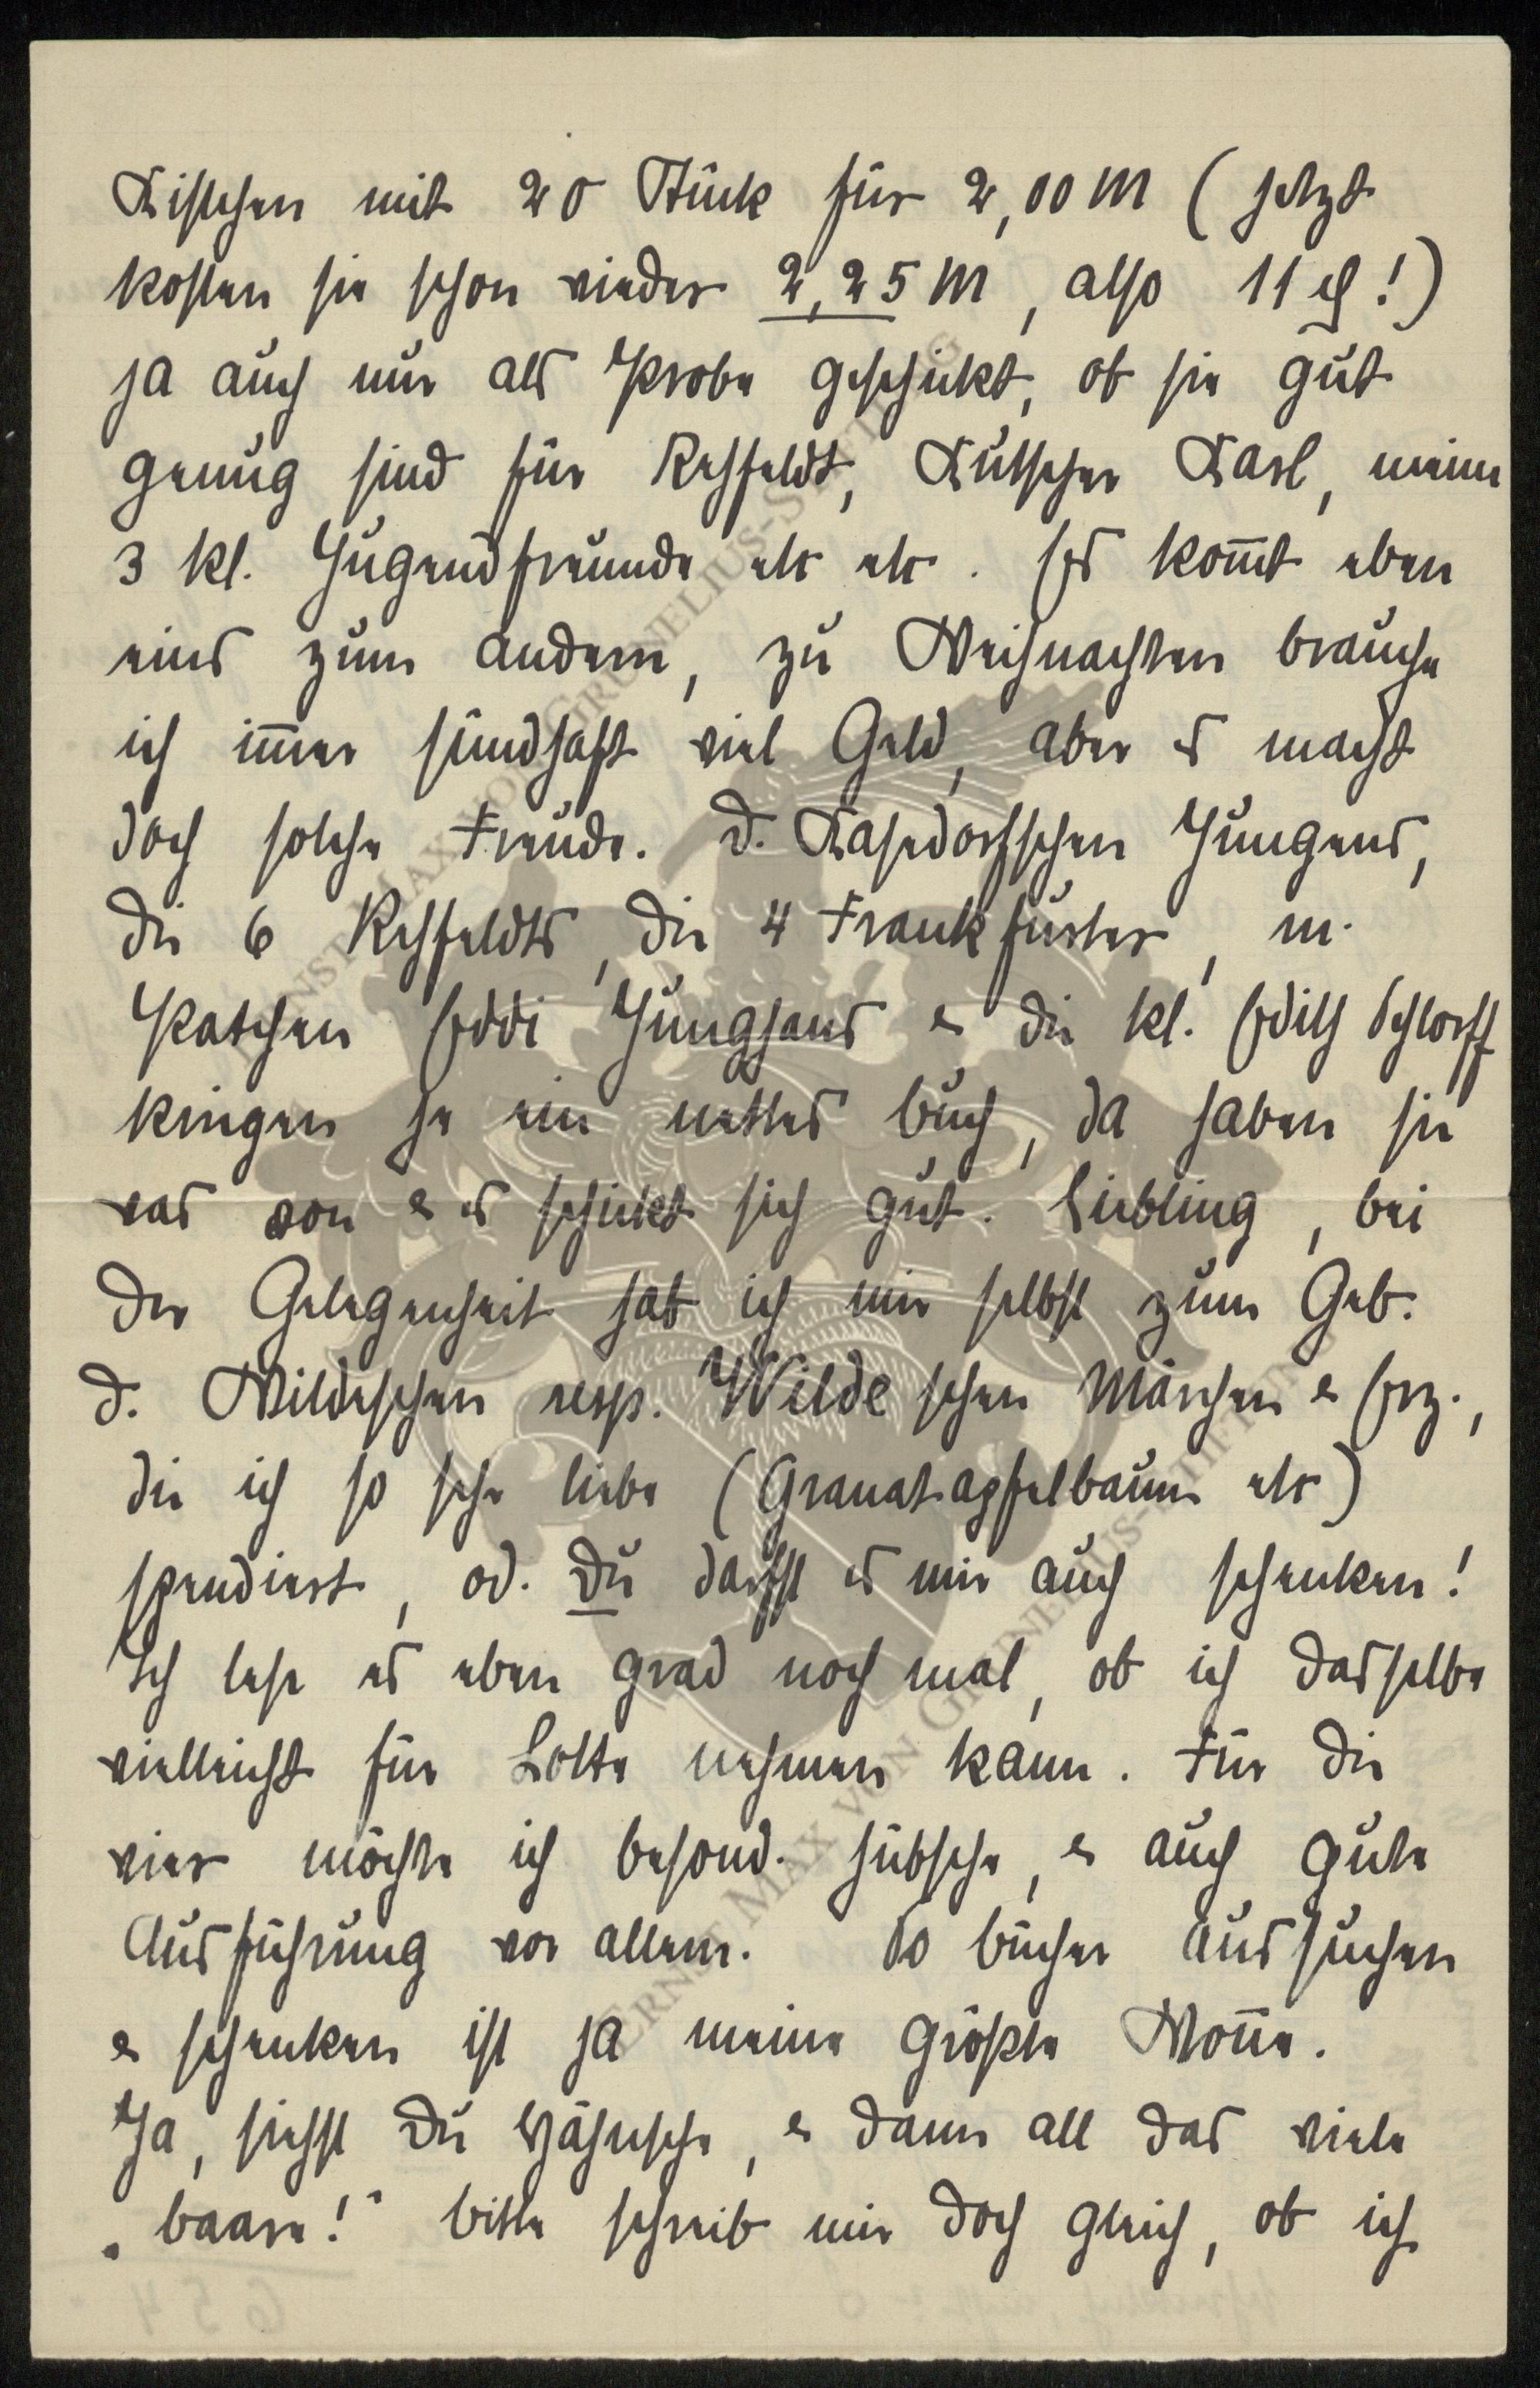 Kistchen mit 20 Stück für 2,00 M (jetzt
kosten sie schon wieder 2,25 M, also 11 ₰!)
ja auch nur als Probe geschickt, ob sie gut
genug sind für Rehfeldt, Kutscher Karl, meine
3 kl. Jugendfreunde etc etc. Es kom̅t eben
eins zum andern, zu Weihnachten brauche
ich im̅er sündhaft viel Geld, aber es macht
doch solche Freude. D. Kasedorfschen Jungens,
die 6 Rehfeldts, die 4 Frankfurter, m.
Patchen Eddi Junghans & die kl. Edith Schlorff
kriegen je ein nettes Buch, da haben sie
was von & es schickt sich gut. Liebling, bei
der Gelegenheit hab ich mir selbst zum Geb.
d. Wildeschen resp. Wilde schen Märchen & Erz.,
die ich so sehr liebe (Granatapfelbaum etc)
spendiert, od. Du darfst es mir auch schenken!
Ich lese es eben grad noch mal, ob ich dasselbe
vielleicht für Lotte nehmen kann. Für die
vier möchte ich besond. hübsche, & auch gute
Ausführung vor allem. So Bücher aussuchen
& schenken ist ja meine größte Won̅e.
Ja, siehst Du, & dann all das viele
„baare!“ Bitte schreib mir doch gleich, ob ich
ERNST MAX VON GRUNELIUS-STIFTUNG
ERNST MAX VON GRUNELIUS-STIFTUNG